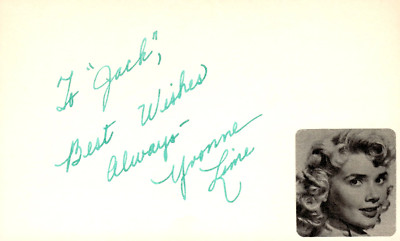 To "Jack",
Best Wishes
Always-
Yvonne
Lime